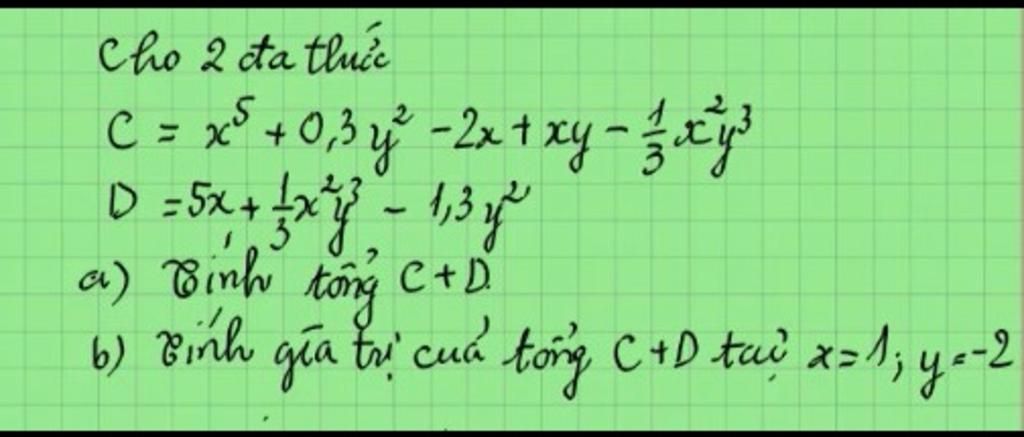 Cho 2 đa thức
C = x⁵ + 0,3y² - 2x + xy - 1/3 x²y³
D = 5x + 1/3 x²y³ - 1,3y²
a) Tính tổng C + D.
b) Tính gía trị cuả tổng C + D taị x = 1; y = -2